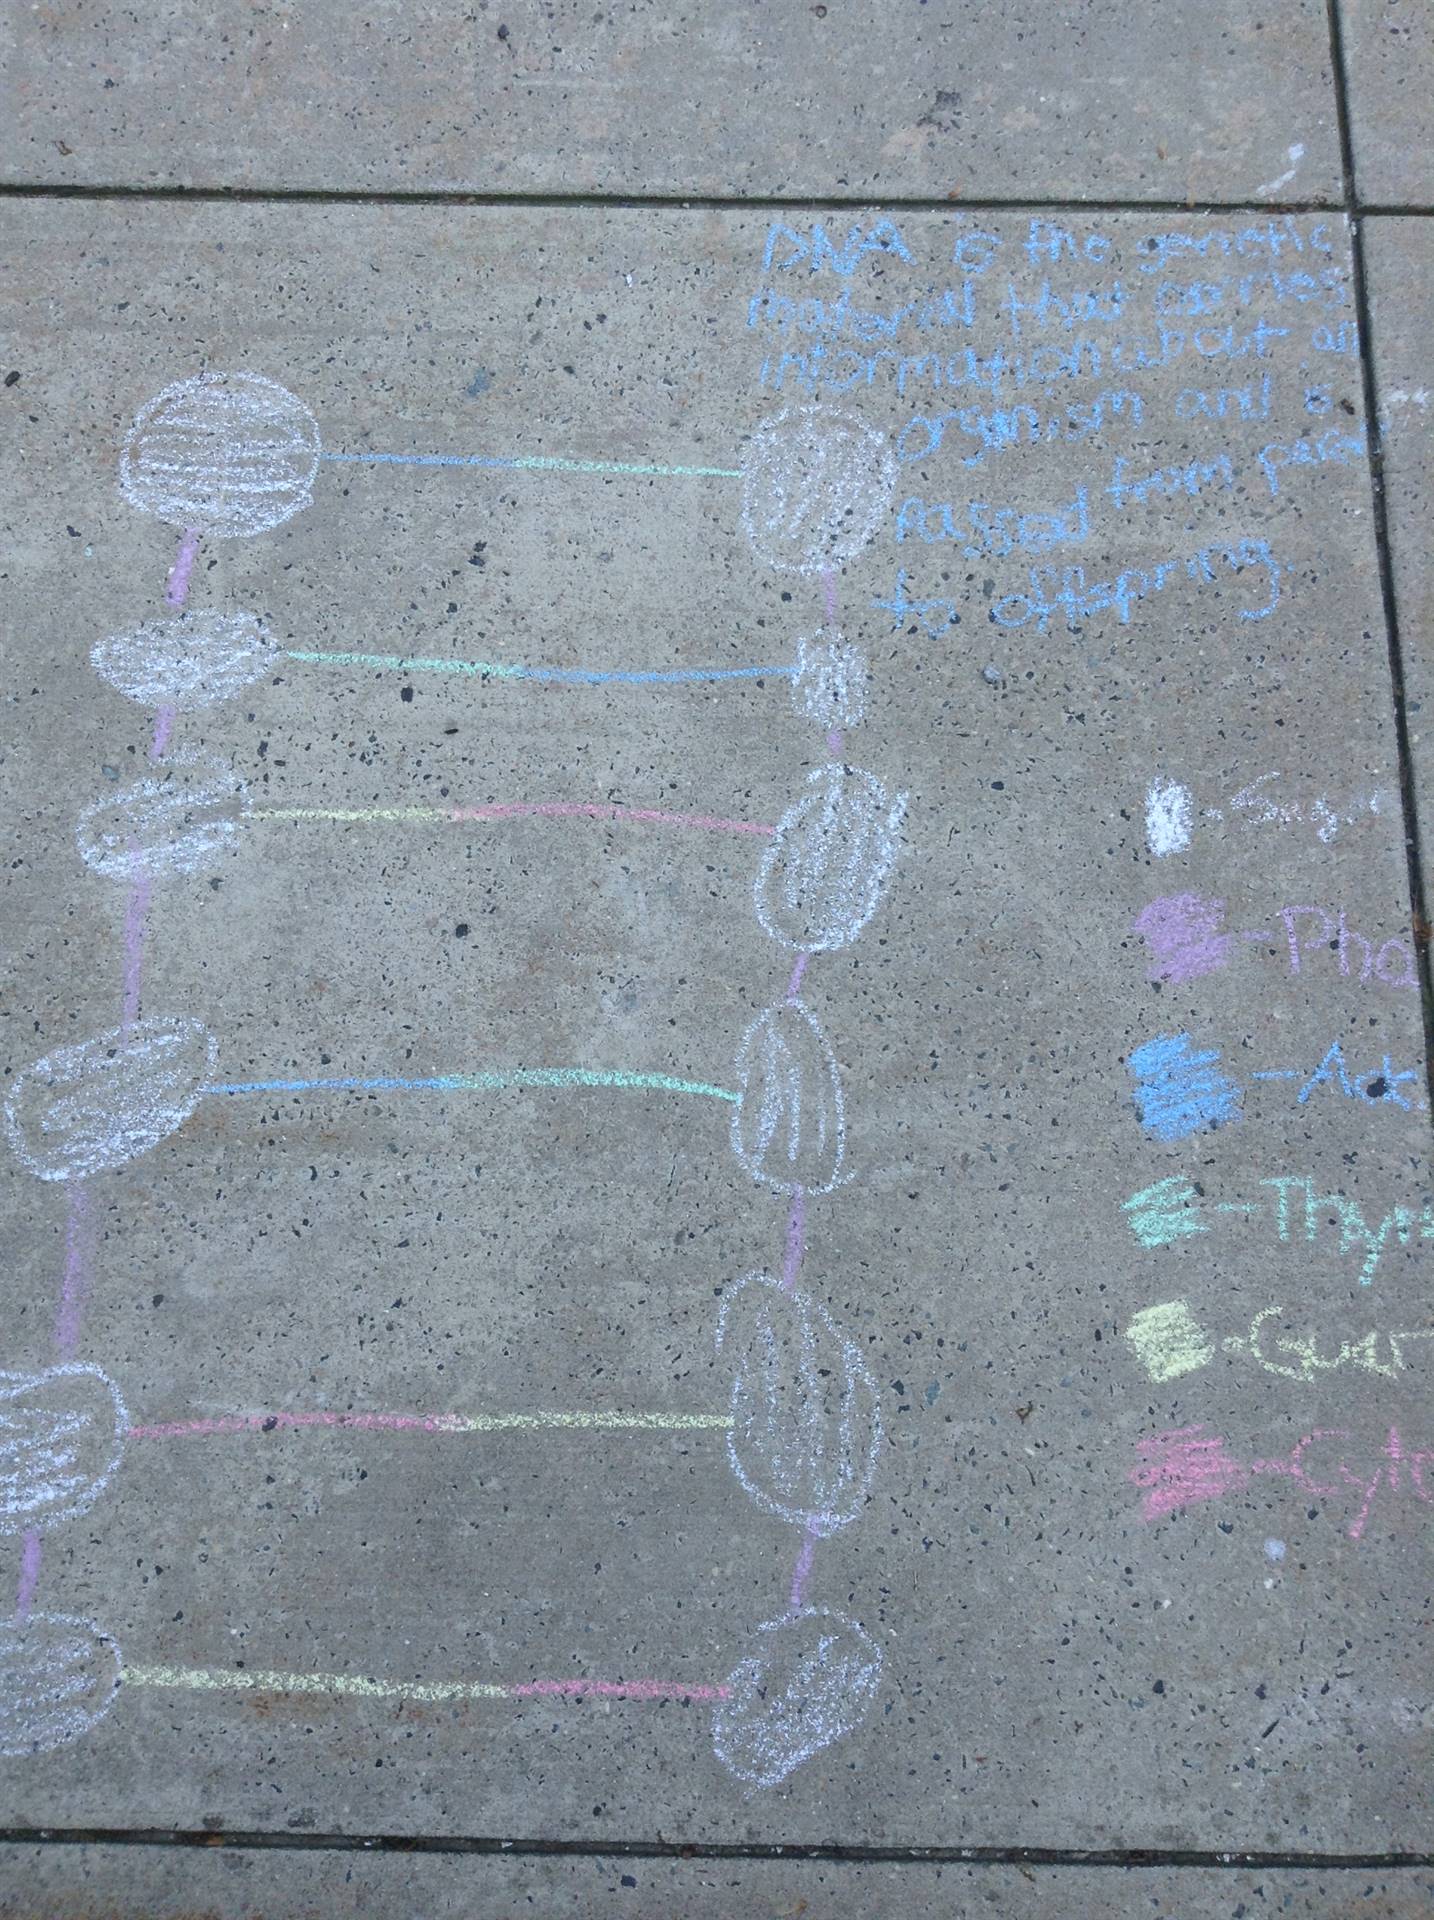 DNA is the genetic
material that carries
information about an
organism and is
Passed from pare
to offspring.
- Sugar
- Pho
- Ad
- Thym
- Guan
- Cyto